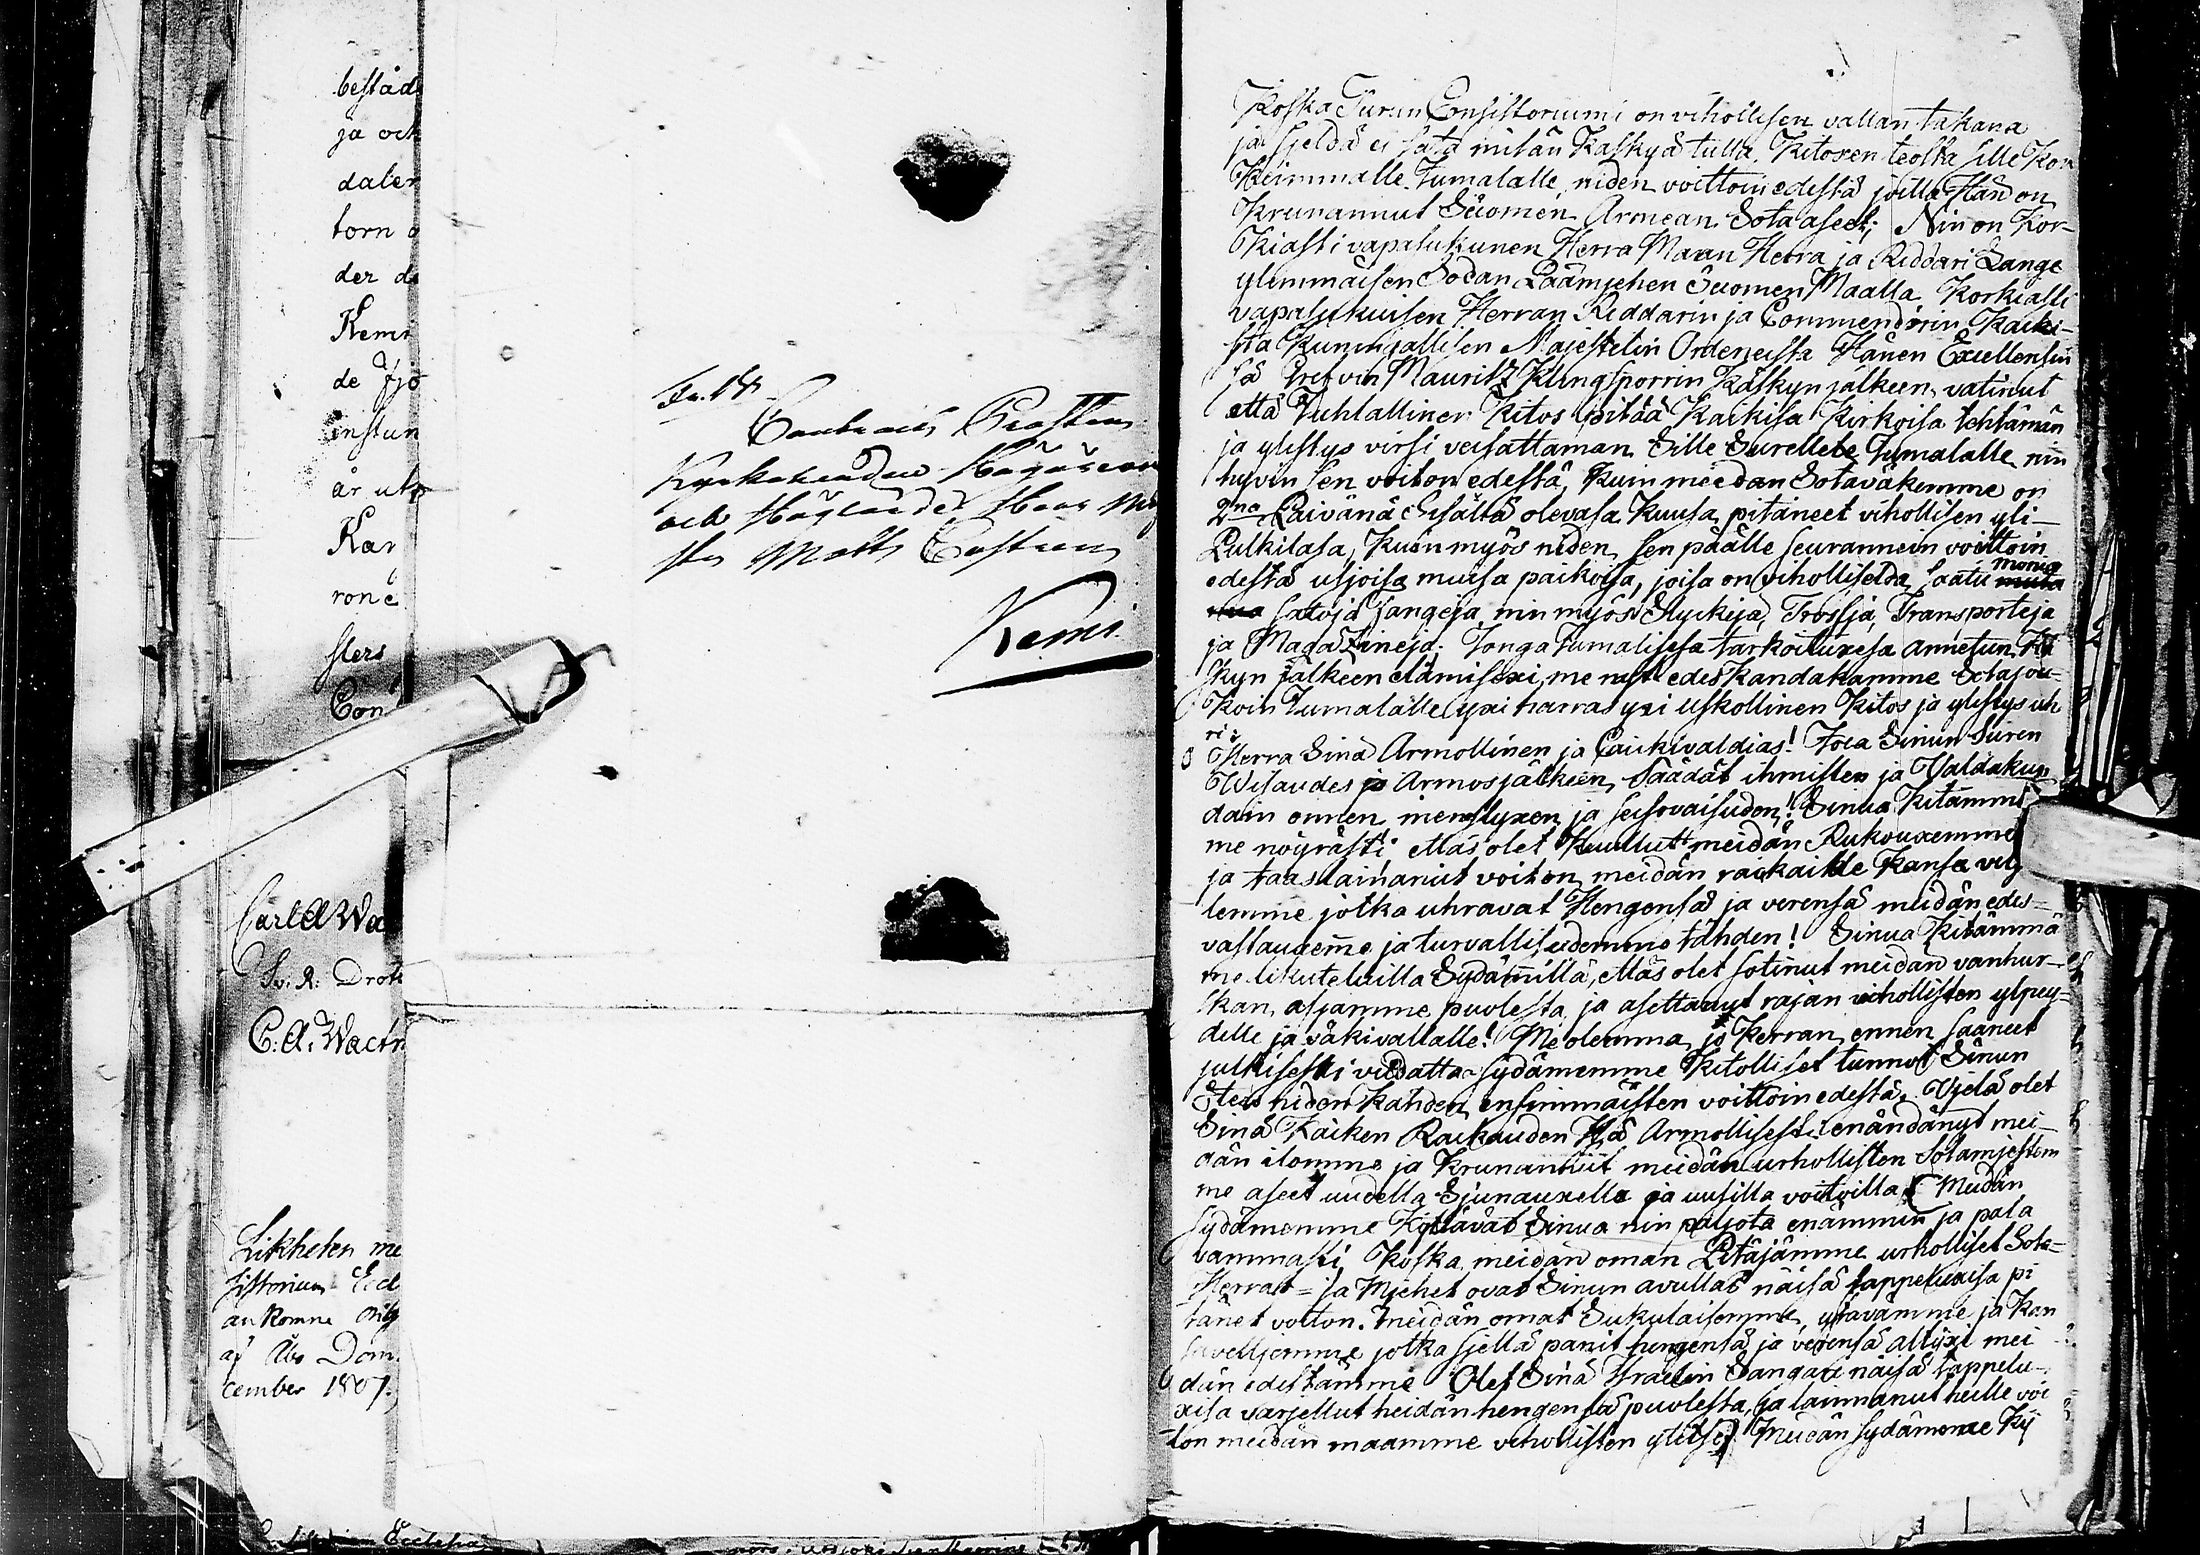 bestäd
ja och
daler
torn
der de
Kemi
de fjo
instun
år utg
Kar
rone
sters
Con
Carl A Wa
Sv. R. Drott
C. A. Wactm
Likheten me
sistorium Eccl
ankomne orig
af Åbo Dom
cember 1807.
Contracts Prosten
Kyrkoherden
och Höglärde Herr Mag
ster Matth Castren
Kemi
Koska Turun Consistoriumi on vihollisen vallan takana
ja sjeldä ei sata mitän Käskyä tulla, Kitoxen teosta sille Kor
Keimmalle Jumalalle, niden voittoin edestä joilla Hän on
Krunannut Suomen Armean Sota aseet; Nin on Kor-
Kiasti vapasukunen Herra Maan Herra ja Riddari Lange
ylimmäisen Sodan Päämjehen Suomen Maalla, Korkiasti
vapasukuisen Herran Riddarin ja Commendörin Kaiki-
sta Kuningallisen Majestetin Ordeneista Hänen Excellensin
sä Grefvin Mauritz Klingsporrin Käskyn jälkeen, vatinut
että Juhlallinen Kitos pitää Kaikisa Kirkoisa tehtämän
ja ylistys virsi veisattaman Sille Surellete Jumalalle nin
hyvin sen voiton edestä, Kuin meidan Sotaväkemme on
2na Päivänä Sisällä olevasa Kuusa pitäneet vihollisen yli-
Pulkilasa, Kuin myös niden sen päälle seurannein voittoin
edestä usjoisa muisa paikoisa, joisa on viholliselda saatu monia
satoja fangeja, nin myös Styckiä, Trossja, Transporteja
ja Magazineja. Jonga Jumalisesa tarkoituxesa annetun Kä
skyn jälkeen elämisexi, me nyt edeskandakamme Sotajou-
Koin Jumalalle yxi harras yxi uskollinen Kitos ja ylistys uh
ri:
O Herra Sinä Armollinen ja Caickivaldias! Joca Sinun Suren
Wisaudes ja Armos jälkeen, Säädät ihmisten ja Valdakun
dain onnen, menestyxen ja seisovaisuden! Sinua Kitämme
me nöyrästi ettäs olet Kuullut meidän Rukouxemme
ja taas lainanut voiton meidän raickaille Kansa vel
lemme jotka uhravat Hengensä ja verensä meidän edes-
vastauxeme ja turvallisudemme tähden! Sinua Kitämmä
me likutetuilla Sydämillä, ettäs olet sotinut meidän vanhur-
skan asjamme puolesta, ja asettanyt rajan vihollisten ylpey-
delle ja väkivallalle! Me olemma jo Kerran ennen saaneet
julkisesti vudatta sydämemme Kitolliset tunnot Sinun
Etees niden Kahden ensimmäisten voittoin edestä. Vjelä olet
Sinä Kaiken Rackauden Isä Armollisesti enändänyt mei-
dän ilomme ja Krunannut meidän urhollisten Sotamjestem
me aseet uudella Sjunauxella ja uusilla voitoilla. Meidän
Sydämemme Kijttävät Sinua nin paljota enämmin ja pala
vammasti Koska meidän oman Pitäjämme urholliset Sota-
Herrat- ja Mjehet ovat Sinun avullas näisä tappeluxisa pi
tänet voiton. Meidän omat Sukulaisemme, ystavämme ja Kan
saveljemme jotka sjellä panit hengensä ja verensä alttixi mei
dän edestämme. Olet Sinä Israelin Sangari näisä tappelu-
xisa varjellut heidän hengensä puolesta, ja lainnanut heille voi
ton meidän maamme vihollisten ylitse. Meidän sydämeme Kij